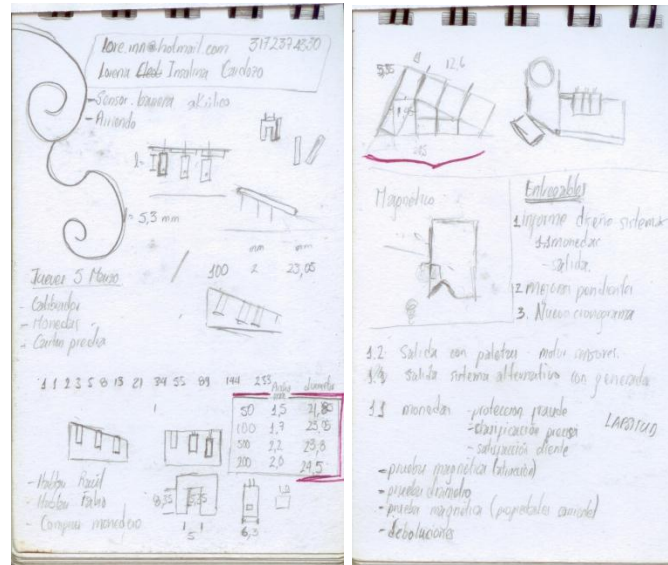 lore.mn@hotmail.com 3172374330
Lorena Insolina Cardozo
- Sensor barrera
- Arriendo
l=
l= 5,3 mm
mm mm
100 2 23,05
Jueves 5 Marzo
- Calibrador
- Monedas
- Cartón
1 1 2 3 5 8 13 21 34 55 89 144 253
Ancho mm Diametro
50 1,5 21,80
100 1,7 23,05
500 2,2 23,8
200 2,0 24,5
- Hablar Raúl
- Hablar Fabio
- Comprar monedero
8,35 5,35
5
6,3
5,35 8 12,6
Magnético
Entregables
1. informe diseño sistema
1.1 monedas
- salida
2 mejoras pendientes
3. Nuevo cronograma
1.2 Salida con paletas - motor sensores.
1.3 Salida sistema alternativo con generador
1.1 monedas - protección fraude
- clasificación precisa
- satisfacción cliente
- pruebas magnética
- pruebas diametro
- pruebas magnética (propiedades
- deboluciones